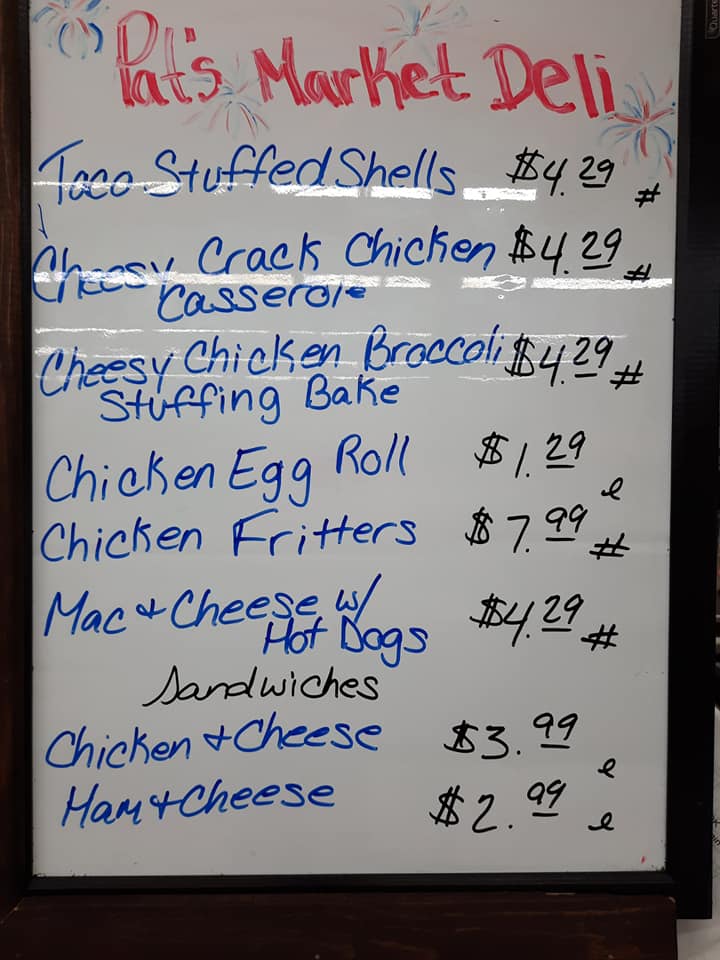 Pat's Market Deli
Taco Stuffed Shells $4.29 #
Cheesy Crack Chicken $4.29 #
Casserole
Cheesy Chicken Broccoli $4.29 #
Stuffing Bake
Chicken Egg Roll $1.29 e
Chicken Fritters $7.99 #
Mac & Cheese w/ $4.29 #
Hot Dogs
Sandwiches
Chicken & Cheese $3.99 e
Ham & Cheese $2.99 e